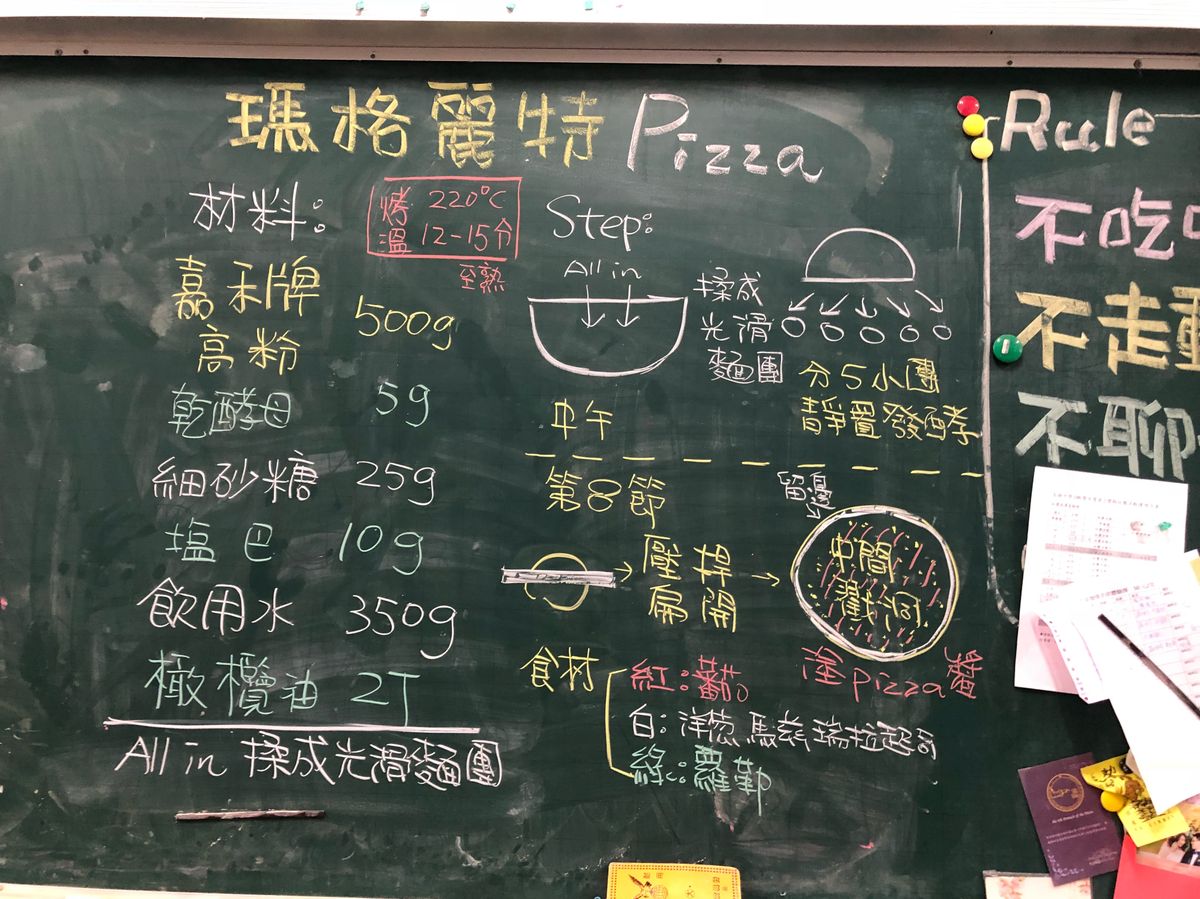 瑪格麗特 Pizza
材料:
烤溫 220°C
12-15分
至熟
嘉禾牌
高粉 500g
乾酵母 5g
細砂糖 25g
塩巴 10g
飲用水 350g
橄欖油 2T
All in 揉成光滑麵團
Step:
All in
揉成
光滑
麵團
分5小團
靜置發酵
中午
第8節
壓扁
捍開
留邊
中間
戳洞
塗pizza醬
食材
紅:蕃茄
白:洋葱 馬茲瑞拉起司
綠:蘿勒
Rule
不吃
不走動
不聊